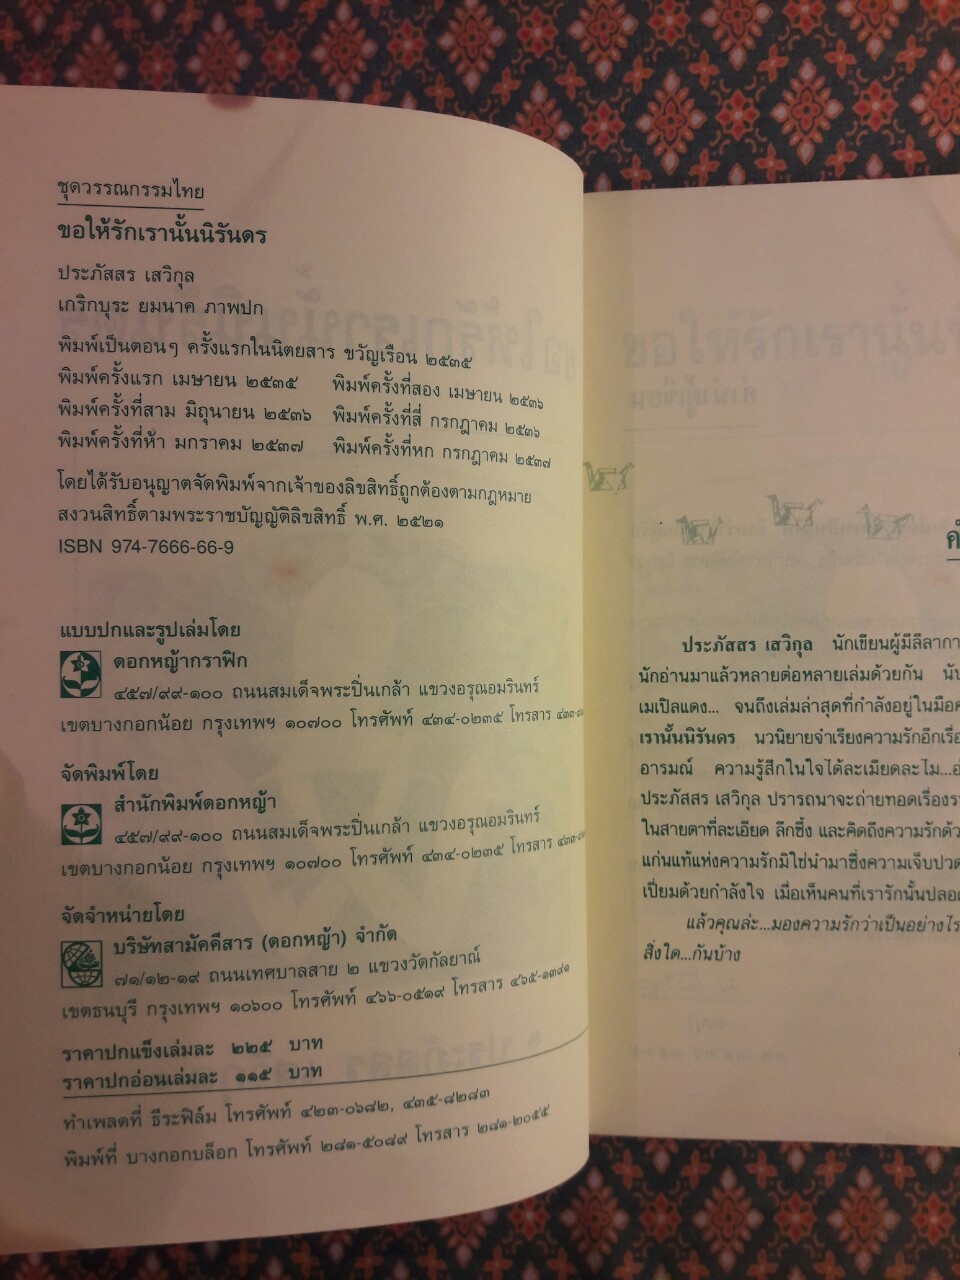 ชุดวรรณกรรมไทย
ขอให้รักเรานั้นนิรันดร
ประภัสสร เสวิกุล
เกริกบุระ ยมนาค ภาพปก
พิมพ์เป็นตอนๆ ครั้งแรกในนิตยสาร ขวัญเรือน ๒๕๓๕
พิมพ์ครั้งแรก เมษายน ๒๕๓๕ พิมพ์ครั้งที่สอง เมษายน ๒๕๓๖
พิมพ์ครั้งที่สาม มิถุนายน ๒๕๓๖ พิมพ์ครั้งที่สี่ กรกฎาคม ๒๕๓๖
พิมพ์ครั้งที่ห้า มกราคม ๒๕๓๗ พิมพ์ครั้งที่หก กรกฎาคม ๒๕๓๗
โดยได้รับอนุญาตจัดพิมพ์จากเจ้าของลิขสิทธิ์ถูกต้องตามกฎหมาย
สงวนสิทธิ์ตามพระราชบัญญัติลิขสิทธิ์ พ.ศ. ๒๕๒๑
ISBN 974-7666-66-9
แบบปกและรูปเล่มโดย
ดอกหญ้ากราฟิก
๔๕๗/๙๙-๑๐๐ ถนนสมเด็จพระปิ่นเกล้า แขวงอรุณอมรินทร์
เขตบางกอกน้อย กรุงเทพฯ ๑๐๗๐๐ โทรศัพท์ ๔๓๔-๐๒๓๕ โทรสาร
จัดพิมพ์โดย
สำนักพิมพ์ดอกหญ้า
๔๕๗/๙๙-๑๐๐ ถนนสมเด็จพระปิ่นเกล้า แขวงอรุณอมรินทร์
เขตบางกอกน้อย กรุงเทพฯ ๑๐๗๐๐ โทรศัพท์ ๔๓๔-๐๒๓๕ โทรสาร
จัดจำหน่ายโดย
บริษัทสามัคคีสาร (ดอกหญ้า) จำกัด
๗๑/๑๒-๑๙ ถนนเทศบาลสาย ๒ แขวงวัดกัลยาณ์
เขตธนบุรี กรุงเทพฯ ๑๐๖๐๐ โทรศัพท์ ๔๖๖-๐๕๑๙ โทรสาร ๔๖๕-๑๓๙๑
ราคาปกแข็งเล่มละ ๒๒๕ บาท
ราคาปกอ่อนเล่มละ ๑๑๕ บาท
ทำเพลตที่ ธีระฟิล์ม โทรศัพท์ ๔๒๓-๐๖๘๒, ๔๓๕-๘๒๘๓
พิมพ์ที่ บางกอกบล็อก โทรศัพท์ ๒๘๑-๕๐๘๙ โทรสาร ๒๘๑-๒๐๕๕
ประภัสสร เสวิกุล นักเขียนผู้มีลีลากา
นักอ่านมาแล้วหลายต่อหลายเล่มด้วยกัน นับ
เมเปิลแดง... จนถึงเล่มล่าสุดที่กำลังอยู่ในมือ
เรานั้นนิรันดร นวนิยายจำเรียงความรักอีกเรื่อ
อารมณ์ ความรู้สึกในใจได้ละเมียดละไม...
ประภัสสร เสวิกุล ปรารถนาจะถ่ายทอดเรื่อง
ในสายตาที่ละเอียด ลึกซึ้ง และคิดถึงความรักด้ว
แก่นแท้แห่งความรักมิใช่นำมาซึ่งความเจ็บปวด
เปี่ยมด้วยกำลังใจ เมื่อเห็นคนที่เรารักนั้นปลอด
แล้วคุณล่ะ...มองความรักว่าเป็นอย่างไร
สิ่งใด...กันบ้าง